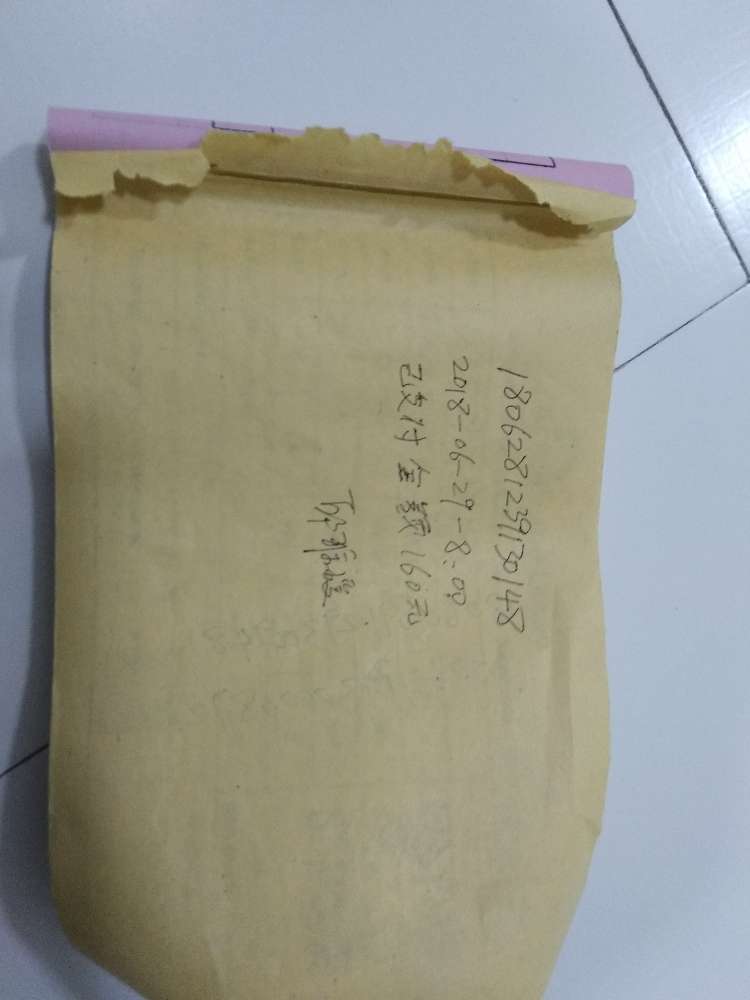 1806281239130148
2018-06-29-8:00
已支付金额160元